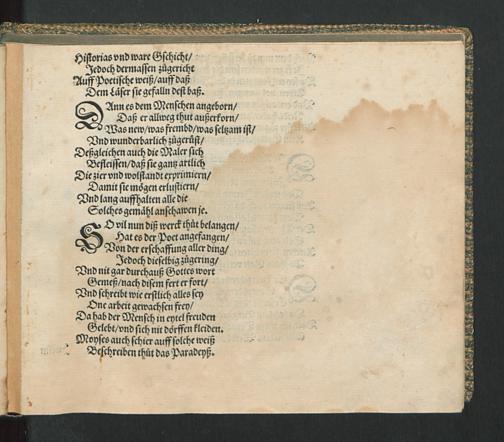 Historias vnd ware Gschicht/
Jedoch dermassen zůgericht
Auff Poetische weiß/auff daß
Dem Läser sie gefalln dest baß.
DAnn es dem Menschen angeborn/
Daß er allweg thut außerkorn/
Was new/was frembd/was seltzam ist/
Vnd wunderbarlich zůgerüst/
Deßgleichen auch die Maler sich
Befleissen/daß sie gantz artlich
Die zier vnd wolstandt exprimiern/
Damit sie mögen erlustiern/
Vnd lang auffhalten alle die
Solches gemähl anschawen je.
SO vil nun diß werck thůt belangen/
Hat es der Poet angefangen/
Von der erschaffung aller ding/
Jedoch dieselbig zügering/
Vnd nit gar durchauß Gottes wort
Gemeß/nach disem fert er fort/
Vnd schreibt wie erstlich alles sey
One arbeit gewachsen frey/
Da hab der Mensch in eytel freuden
Gelebt/vnd sich nit dörffen kleiden.
Moyses auch schier auff solche weiß
Beschreiben thůt das Paradeyß.